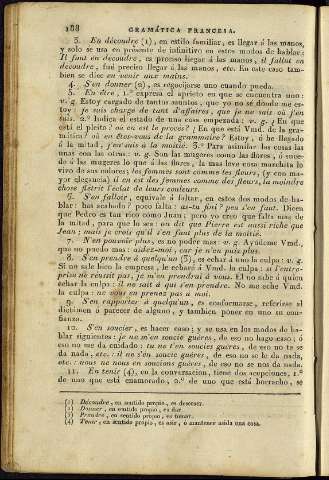 188 GRAMÁTICA FRANCESA.
3. En découdre (1), en estilo familiar, es llegar á las manos,
y solo se usa en presente de infinitivo en estos modos de hablar:
Il faut en découdre, es preciso llegar á las manos, il fallut en
découdre, fué preciso llegar á las manos, etc. En este caso tam-
bien se dice en venir aux mains.
4. S'en donner (2), es regocijarse uno cuando puede.
5. En être, 1.º expresa el aprieto en que se encuentra uno:
v. g. Estoy cargado de tantos asuntos, que yo no sé donde me es-
toy: je suis chargé de tant d'affaires, que je ne sais où j'en
suis. 2.º Indica el estado de una cosa empezada: v. g. ¿En que
está el pleito? où en est le procès? ¿En que está Vmd. de la gra-
mática? où en êtes-vous de la grammaire? Estoy, ó he llegado
á la mitad, j'en suis à la moitié. 3.º Para asimilar las cosas las
unas con las otras: v. g. Son las mugeres como las flores, ó suce-
de á las mugeres lo que á las flores, la mas leve cosa marchita lo
vivo de sus colores, les femmes sont comme les fleurs, (y con ma-
yor elegancia) il en est des femmes comme des fleurs, la moindre
chose flétrit l'éclat de leurs couleurs.
6. S'en falloir, equivale á faltar, en estos dos modos de ha-
blar: has acabado? poco falta: as-tu fini? peu s'en faut. Dicen
que Pedro es tan rico como Juan; pero yo creo que falta mas de
la mitad, para que lo sea: on dit que Pierre est aussi riche que
Jean; mais je crois qu'il s'en faut plus de la moitié.
7. N'en pouvoir plus, es no poder mas: v. g. Ayúdeme Vmd.
que no puedo mas: aidez-moi, car je n'en puis plus.
8. S'en prendre á quelqu'un (3), es echar á uno la culpa: v. g.
Si no sale luce la empresa, le echaré á Vmd. la culpa: si l'entre-
prise ne réussit pas, je m'en prendrai à vous. El no sabe á quien
echar la culpa: il ne sait à qui s'en prendre. No me eche Vmd.
la culpa: ne vous en prenez pas à moi.
9. S'en rapporter à quelqu'un, es conformarse, referirse al
dictámen ó parecer de alguno, y tambien poner en uno su con-
fianza.
10. S'en soucier, es hacer caso; y se usa en los modos de ha-
blar siguientes: je ne m'en soucie guères, de eso no hago caso; ó
eso no me da cuidado: tu ne t'en soucies guères, de eso no te se
da nada, etc.: il ne s'en soucie guères, de eso no se le da nada,
etc.: nous ne nous en soucions guères, de eso no se nos da nada.
11. En tenir (4), en la conversacion, tiene dos acepciones, 1.º
de uno que está enamorado, 2.º de uno que está borracho, se
(1) Découdre, en sentido propio, es descoser.
(2) Donner, en sentido propio, es dar.
(3) Prendre, en sentido propio, es tomar.
(4) Tenir, en sentido propio, es asir, ó mantener asida una cosa.